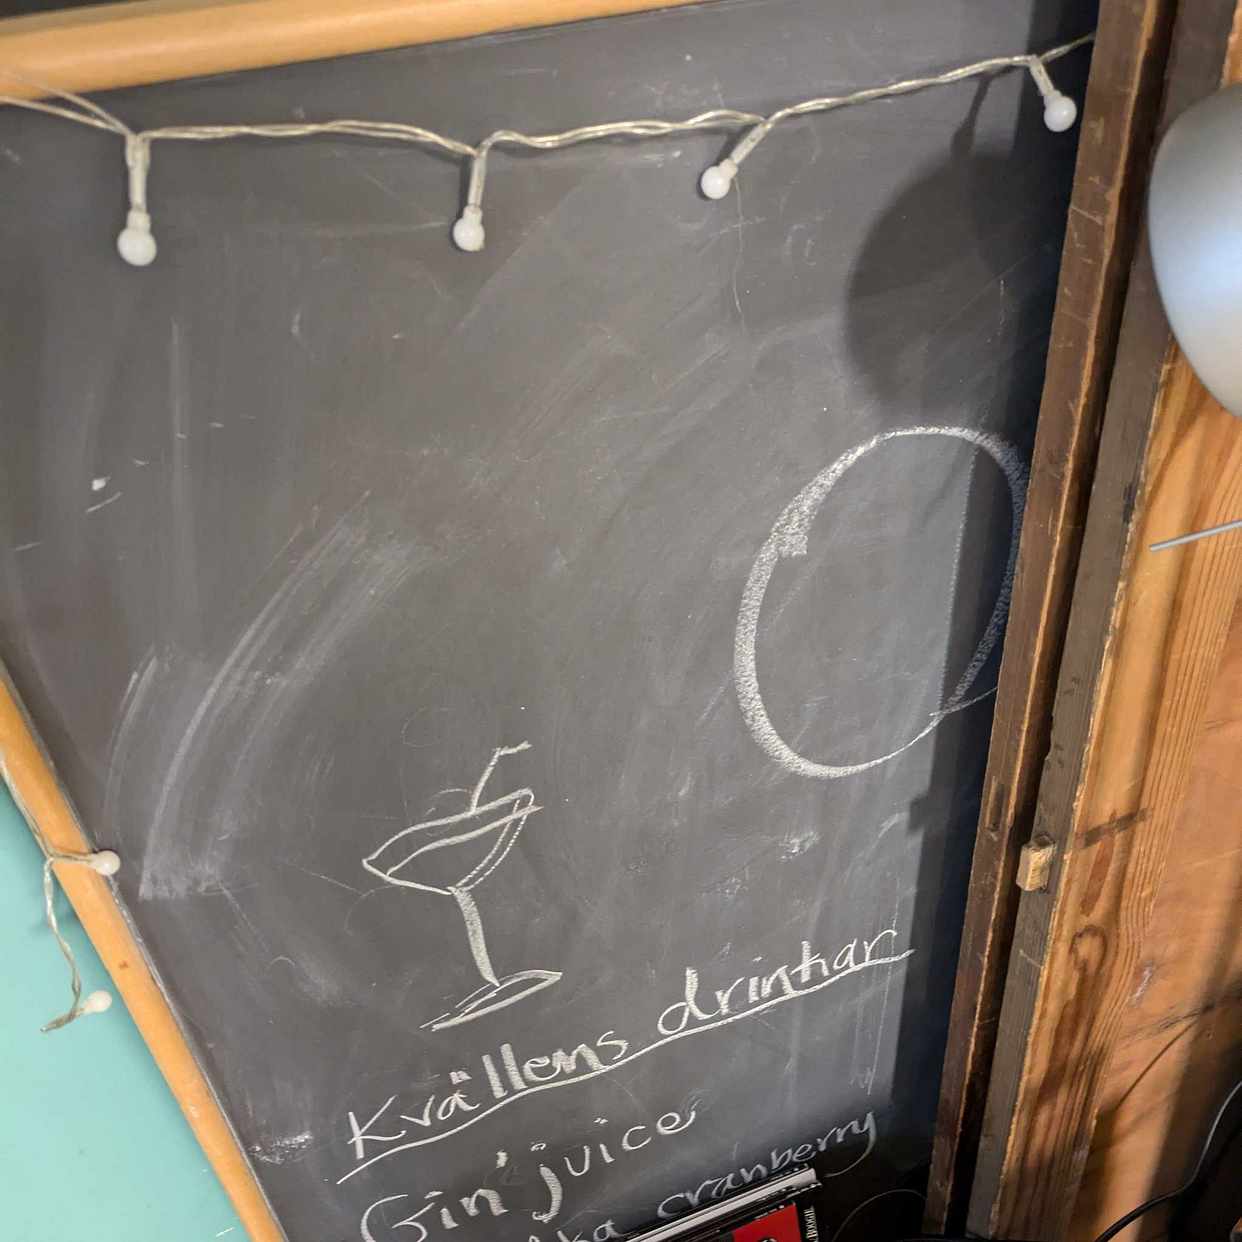 O
Kvällens drinkar
Gin' juice
cranberry